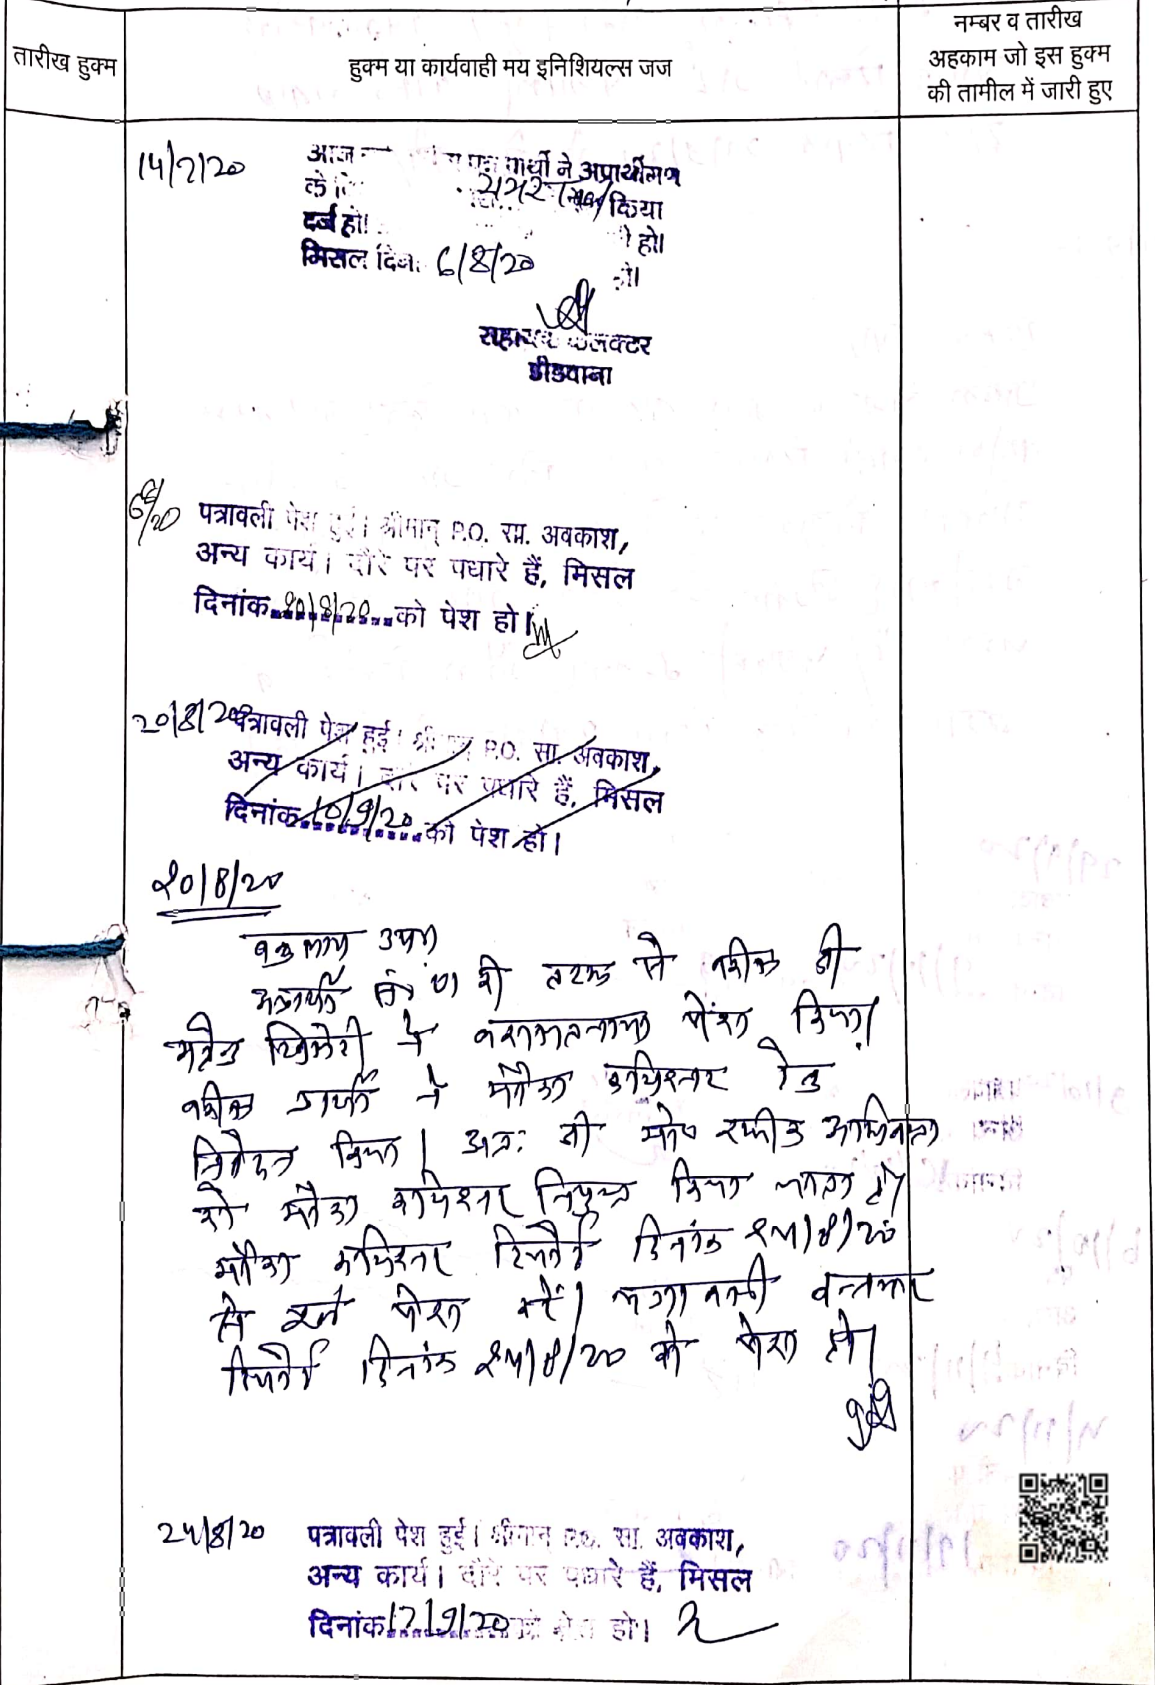 तारीख हुक्म
हुक्म या कार्यवाही मय इनिशियल्स जज
नम्बर व तारीख
अहकाम जो इस हुक्म
की तामील में जारी हुए
14/7/20
आज प्रार्थी ने अप्रार्थीगण
के किया
दर्ज हो। हो।
मिसल दिनांक 6/8/20
सहायक कलक्टर
डीडवाना
6/8/20
पत्रावली पेश हुई। श्रीमान् P.O. सा. अवकाश,
अन्य कार्य। दौरे पर पधारे हैं, मिसल
दिनांक 20/8/20 को पेश हो।
20/8/20
पत्रावली पेश हुई। श्रीमान् P.O. सा. अवकाश,
अन्य कार्य। दौरे पर पधारे हैं, मिसल
दिनांक 10/9/20 को पेश हो।
20/8/20
की तरफ से वकील श्री
ने वकालतनामा पेश किया।
वकील प्रार्थी ने मौका कमिश्नर हेतु
निवेदन किया। अतः श्री मो० रफीक अभिभाषक
को मौका कमिश्नर नियुक्त किया जाता है।
मौका कमिश्नर रिपोर्ट दिनांक 24/8/20
से पूर्व पेश करें। पत्रावली वास्ते
रिपोर्ट दिनांक 24/8/20 को पेश हो।
24/8/20
पत्रावली पेश हुई। श्रीमान P.O. सा. अवकाश,
अन्य कार्य। दौरे पर पधारे हैं, मिसल
दिनांक 17/9/20 को पेश हो।